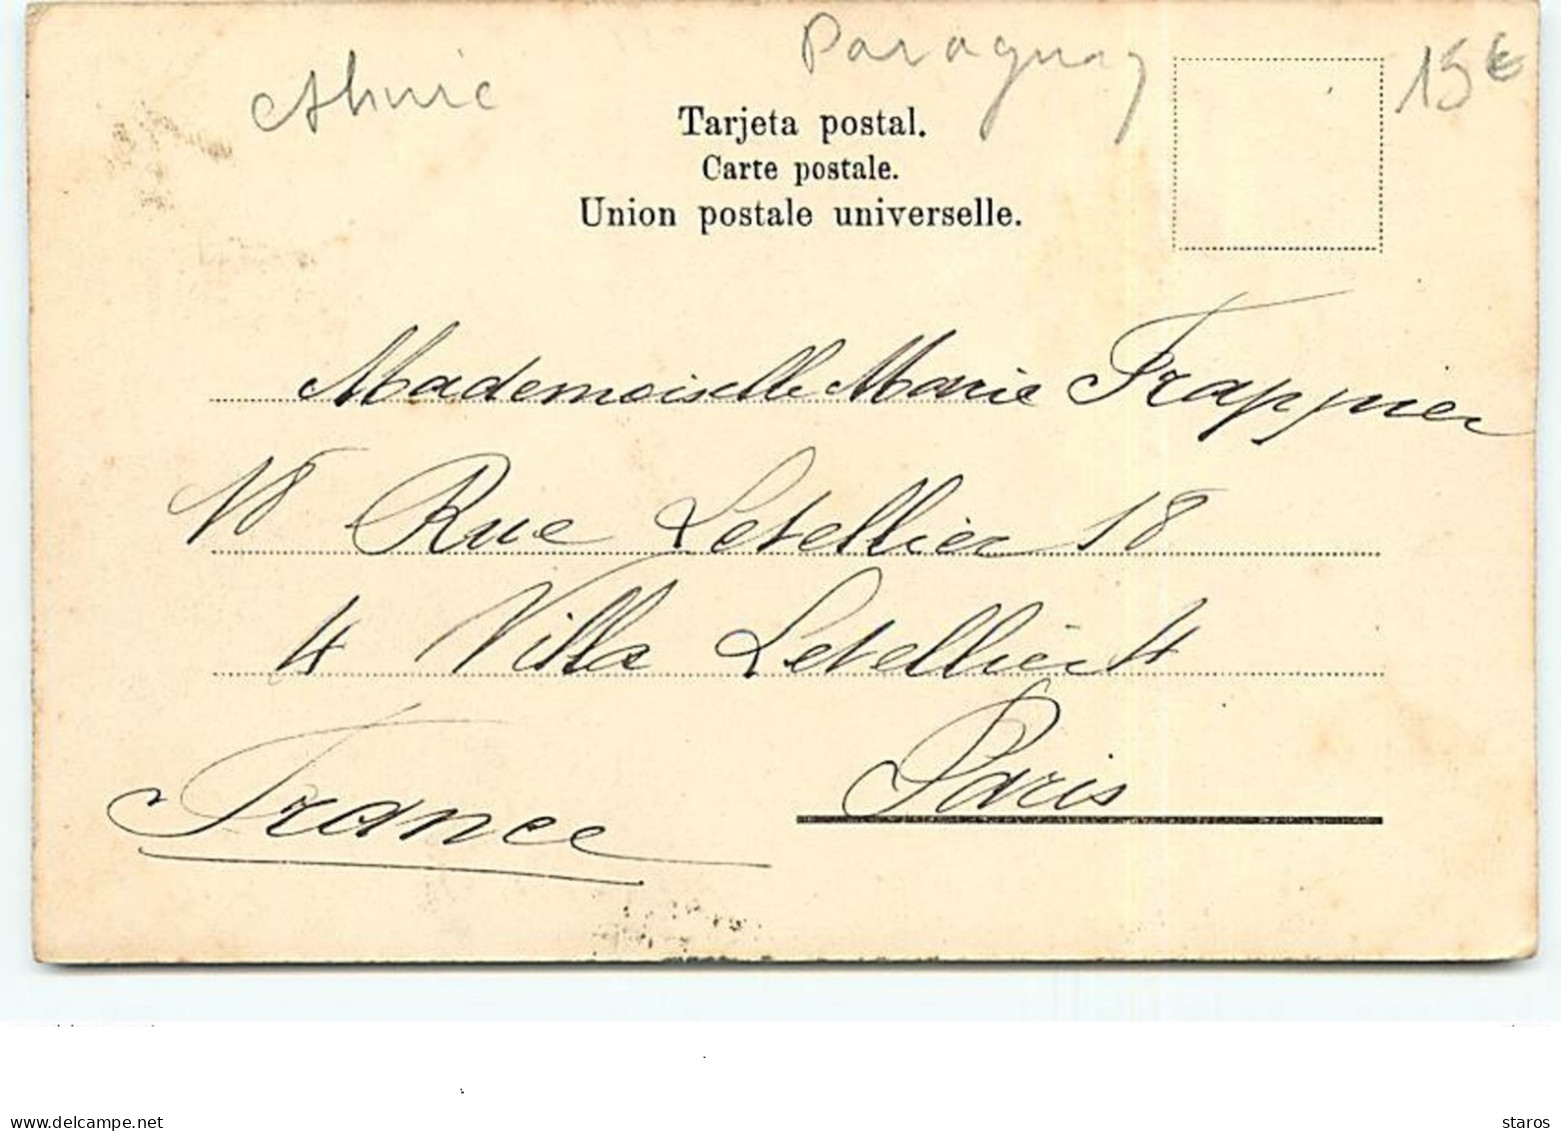 Paraguay
15€
Tarjeta postal.
Carte postale.
Union postale universelle.
Mademoiselle Marie Frappier
18 Rue Letellier 18
4 Villa Letellier 4
Paris
France
my-website delcampe.net
staros